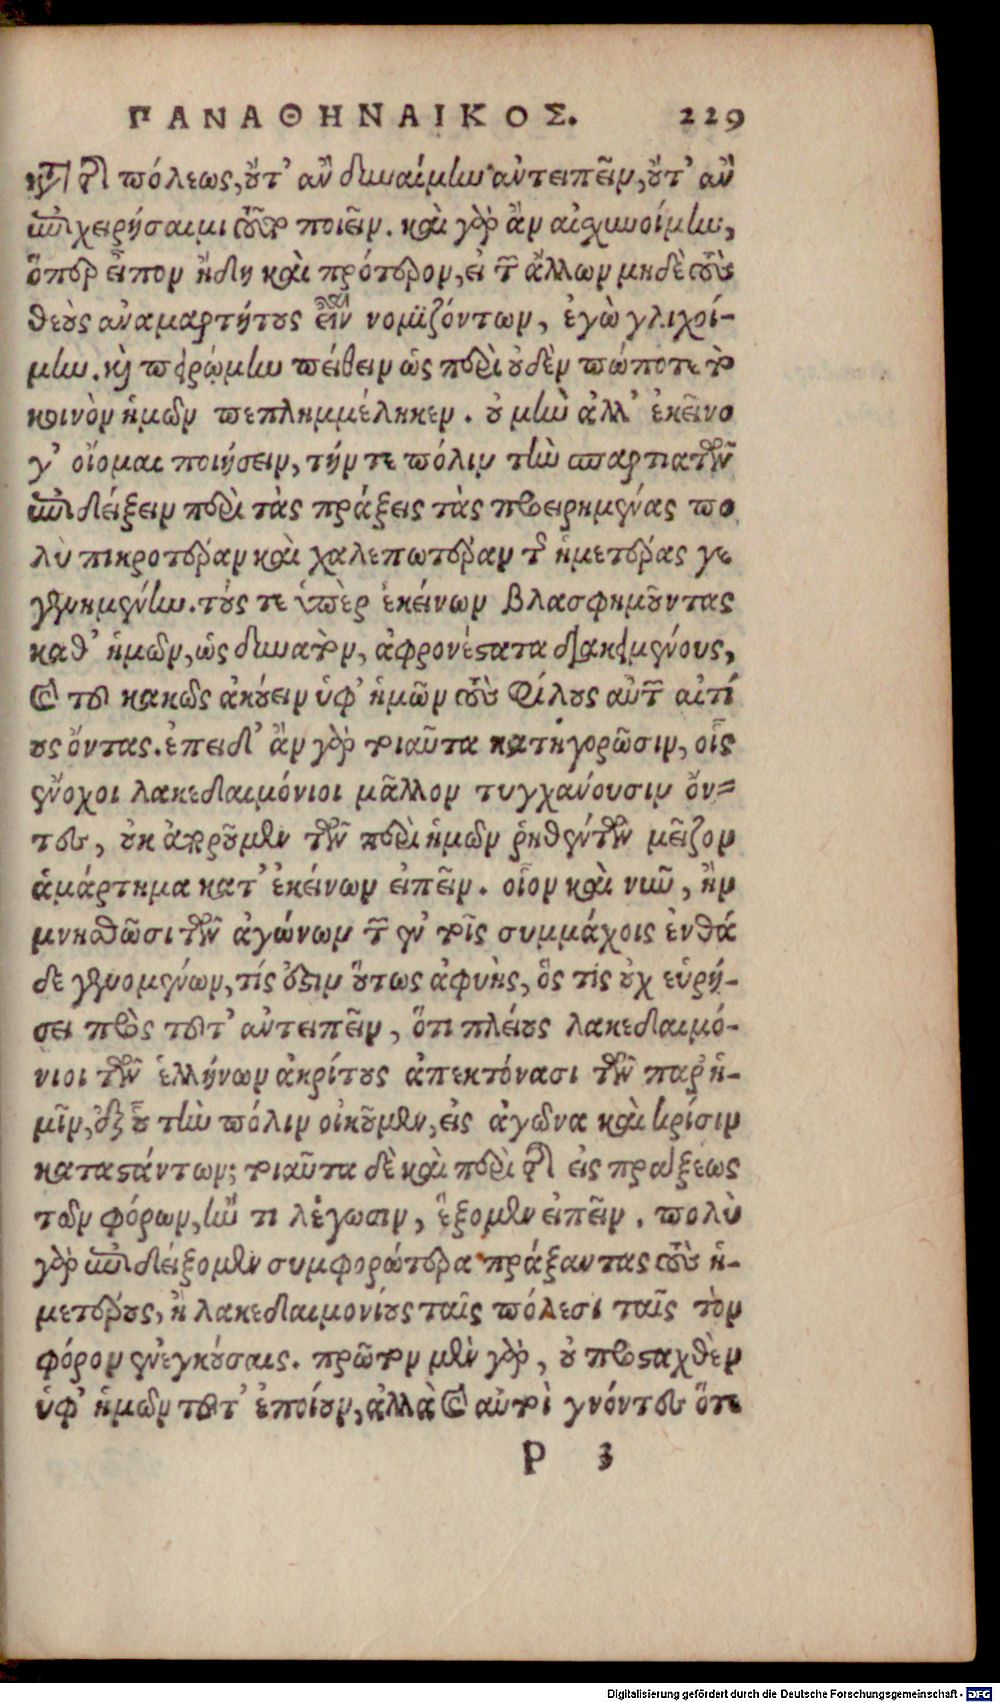 ΠΑΝΑΘΗΝΑΙΚΟΣ. 229
κατὰ τῆς πόλεως, οὔτ' ἂν δυναίμην ἀντειπεῖν, οὔτ' ἂν
ἐπιχειρήσαιμι τοῦτο ποιεῖν. καὶ γὰρ ἂν αἰσχυνοίμην,
ὅπερ εἶπον ἤδη καὶ πρότερον, εἰ τῶν ἄλλων μηδὲ τοὺς
θεοὺς ἀναμαρτήτους εἶναι νομιζόντων, ἐγὼ γλιχοί-
μην. καὶ πειρῴμην πείθειν ὡς περὶ οὐδὲν πώποτε τὸ
κοινὸν ἡμῶν πεπλημμέληκεν. οὐ μὴν ἀλλ' ἐκεῖνο
γ' οἴομαι ποιήσειν, τήν τε πόλιν τὴν σπαρτιατῶν
ἐπιδείξειν περὶ τὰς πράξεις τὰς προειρημένας πο
λὺ πικροτέραν καὶ χαλεπωτέραν τῆς ἡμετέρας γε
γενημένην. τούς τε ὑπὲρ ἐκείνων βλασφημοῦντας
καθ' ἡμῶν, ὡς δυνατὸν, ἀφρονέστατα διακειμένους,
καὶ τοῦ κακῶς ἀκούειν ὑφ' ἡμῶν τοὺς φίλους αὐτῶν αἰτί
ους ὄντας. ἐπειδ' ἂν γὰρ τοιαῦτα κατηγορῶσιν, οἷς
ἔνοχοι λακεδαιμόνιοι μᾶλλον τυγχάνουσιν ὄν-
τες, οὐκ ἀποροῦμεν τῶν περὶ ἡμῶν ῥηθέντων μεῖζον
ἁμάρτημα κατ' ἐκείνων εἰπεῖν. οἷον καὶ νῦν, ἢν
μνησθῶσι τῶν ἀγώνων τῶν ἐν τοῖς συμμάχοις ἐνθά
δε γενομένων, τίς ἔστιν οὕτως ἀφυὴς, ὅς τις οὐχ εὑρή-
σει πρὸς τοῦτ' ἀντειπεῖν, ὅτι πλείους λακεδαιμό-
νιοι τῶν ἑλλήνων ἀκρίτους ἀπεκτόνασι τῶν παρ' ἡ-
μῖν, ἐξ οὗ τὴν πόλιν οἰκοῦμεν, εἰς ἀγῶνα καὶ κρίσιν
καταστάντων; τοιαῦτα δὲ καὶ περὶ τῆς εἰς πράξεως
τῶν φόρων, ἤν τι λέγωσιν, ἕξομεν εἰπεῖν. πολὺ
γὰρ ἐπιδείξομεν συμφορώτερα πράξαντας τοὺς ἡ-
μετέρους, ἢ λακεδαιμονίους ταῖς πόλεσι ταῖς τὸν
φόρον ἐνεγκούσαις. πρῶτον μὲν γὰρ, οὐ προσταχθὲν
ὑφ' ἡμῶν τοῦτ' ἐποίουν, ἀλλὰ καὶ αὐτοὶ γνόντες ὅτε
P 3
Digitalisierung gefördert durch die Deutsche Forschungsgemeinschaft - DFG